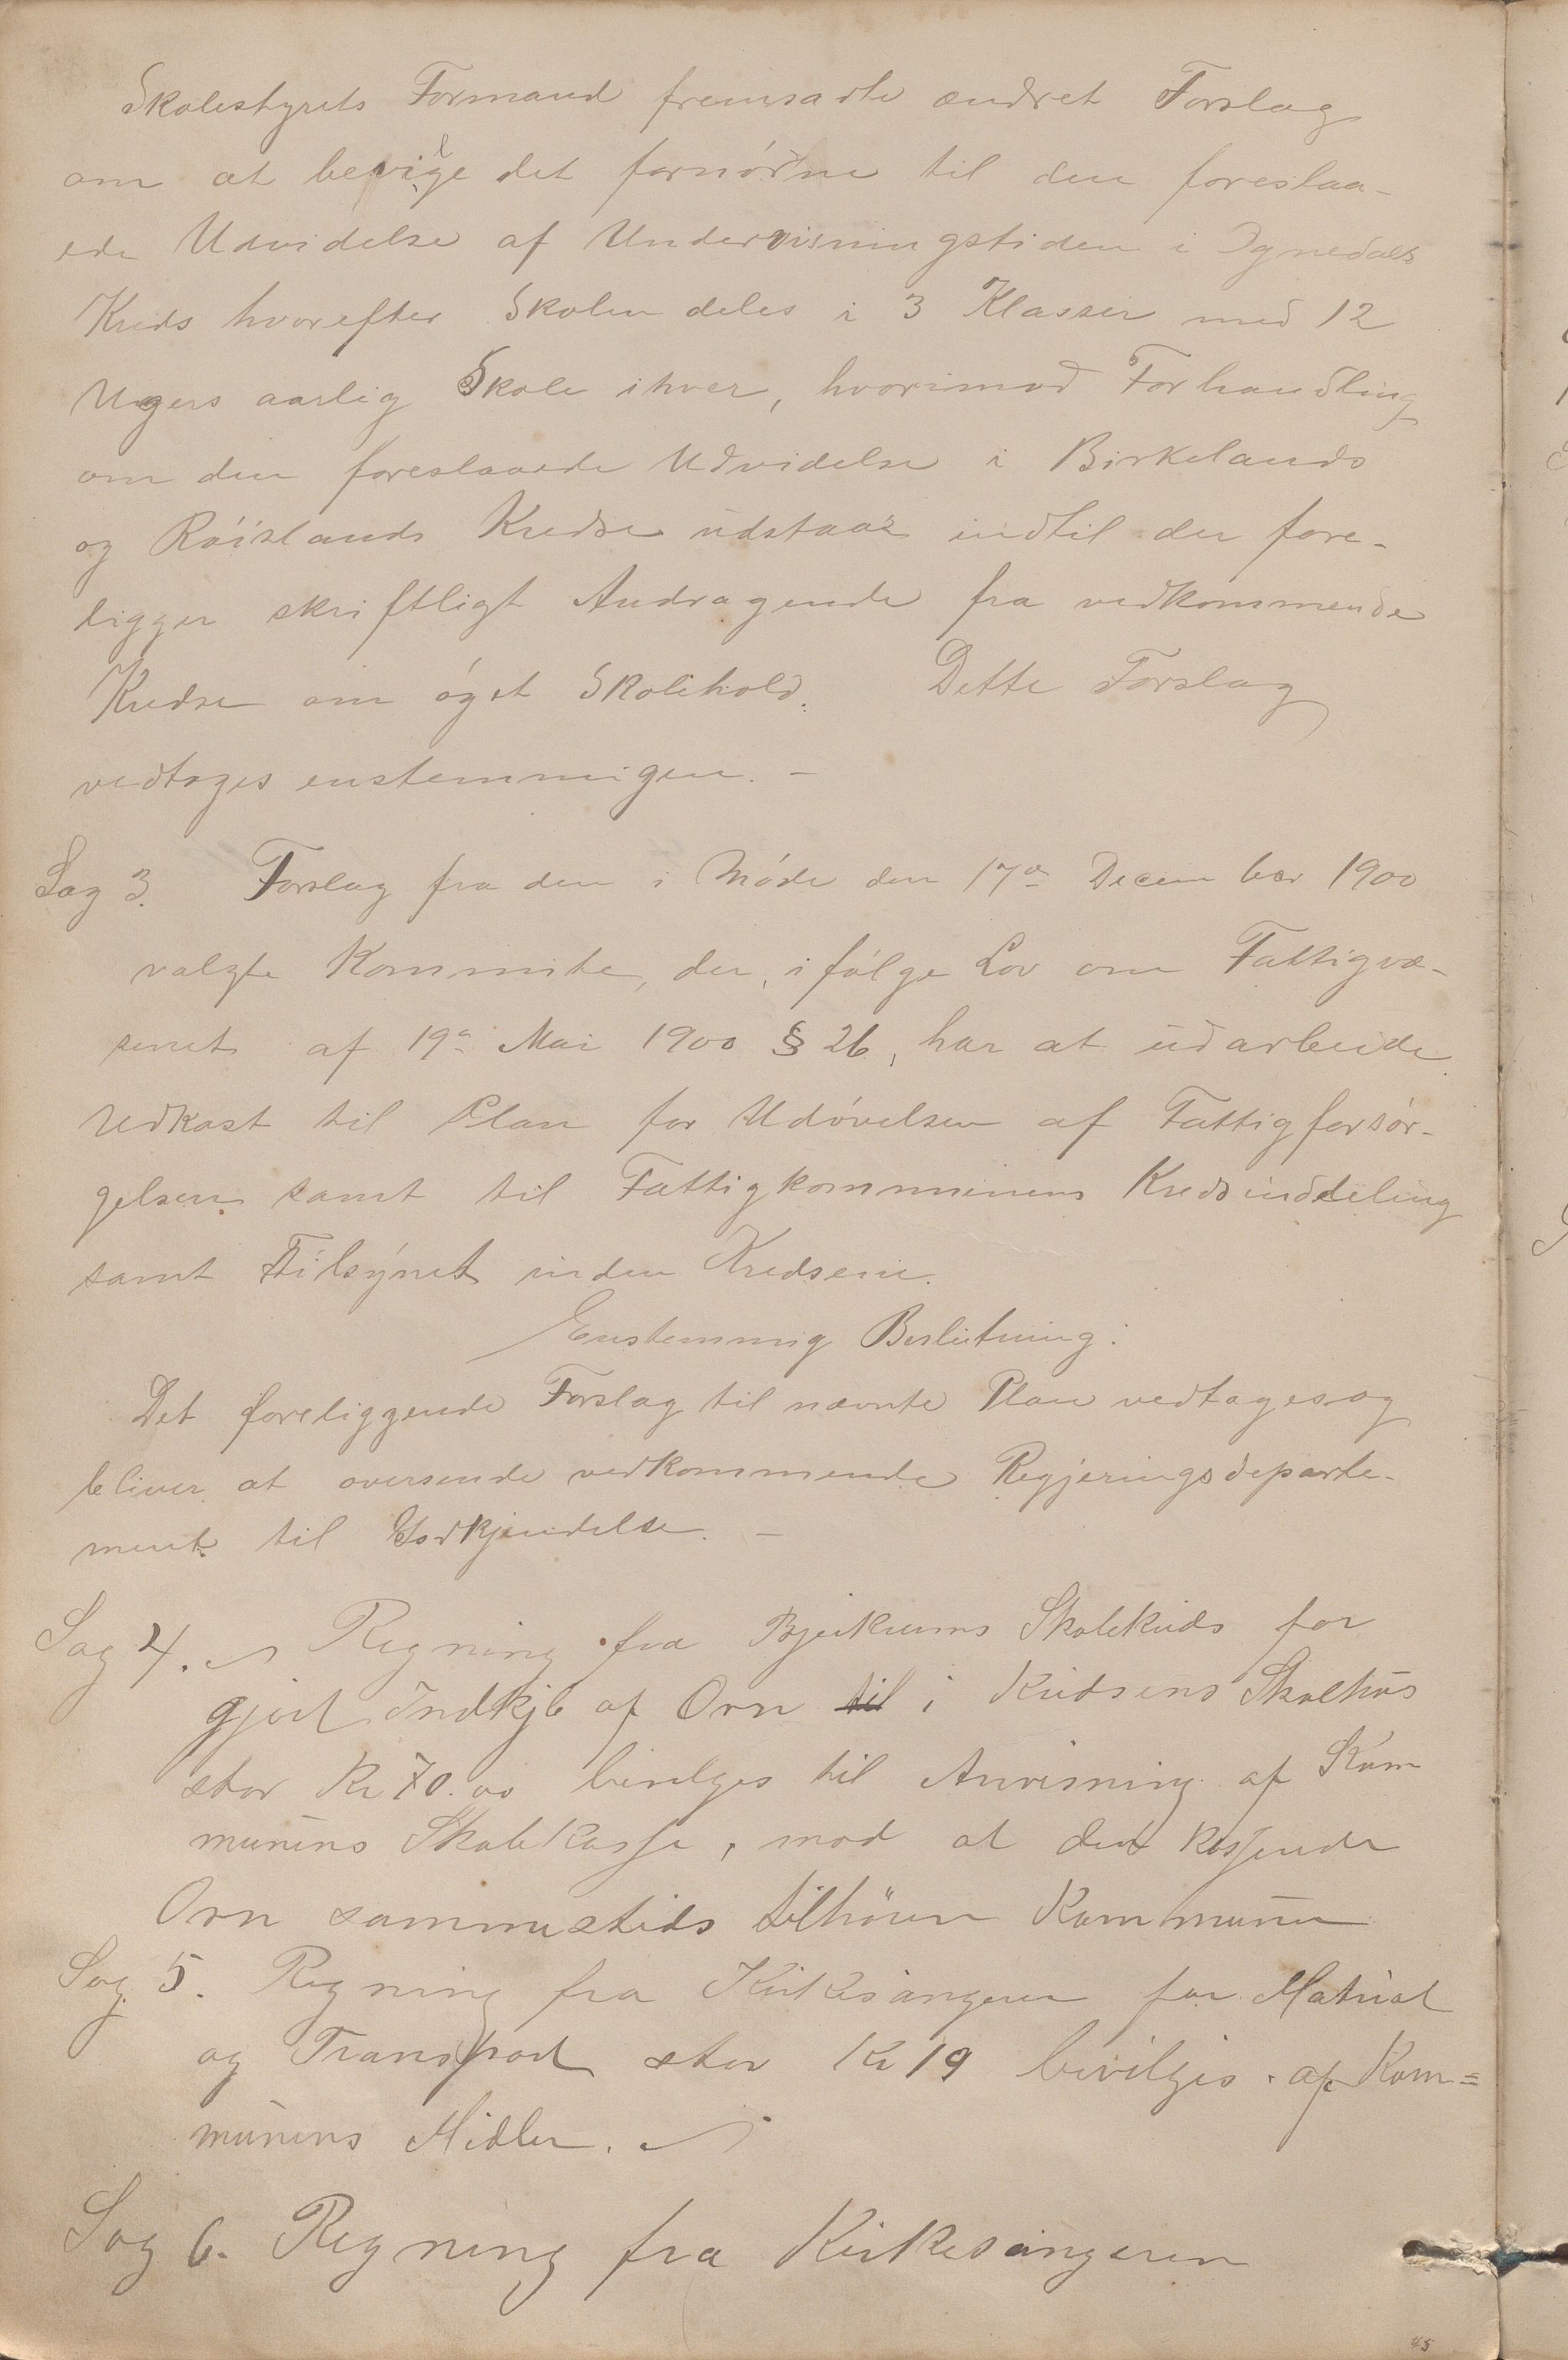 Skolestyrets Formand fremsatte ændret Forslag
om at bevilge det fornødne til den foreslaa-
ede Udvidelse af Undervisningstiden i Ognedals
Kreds hvorefter Skolen deles i 3 Klasser med 12
Ugers aarlig Skole ihver, hvorimod Forhandling
om den foreslaaede Udvidelse i Birkelands
og Røislands Kredse udstaar indtil der fore-
ligger skriftligt Andragende fra vedkommende
Kredse om øget Skolehold. Dette Forslag
vedtages enstemmigen. -
Sag 3. Forslag fra den i Møde den 17de December 1900
valgte Kommite, der, ifølge Lov om Fattigvæ-
senet af 19de Mai 1900 § 26, har at udarbeide
Udkast til Plan for Udøvelsen af Fattigforsør-
gelsen samt til Fattigkommunens Kredsinddeling
samt Tilsynet inden Kredsene.
Enstemmig Beslutning:
Det foreliggende Forslag til nævnte Plan vedtages og
bliver at oversende vedkommende Regjeringsdeparte-
ment til Godkjendelse. -
Sag 4. Regning fra Bjerkrums Skolekreds for
gjort Indkjøb af Ovn til i Kredsens Skolehus
stor Kr 70.00 bevilges til Anvisning af Kom
munens Skolekasse, mod at den kassende
Ovn sammesteds tilhører Kommunen
Sag 5. Regning fra Kirkesangeren for Matrial
og Transport stor Kr 19 bevilges af Kom=
munens Midler.
Sag 6. Regning fra Kirkesangeren
45